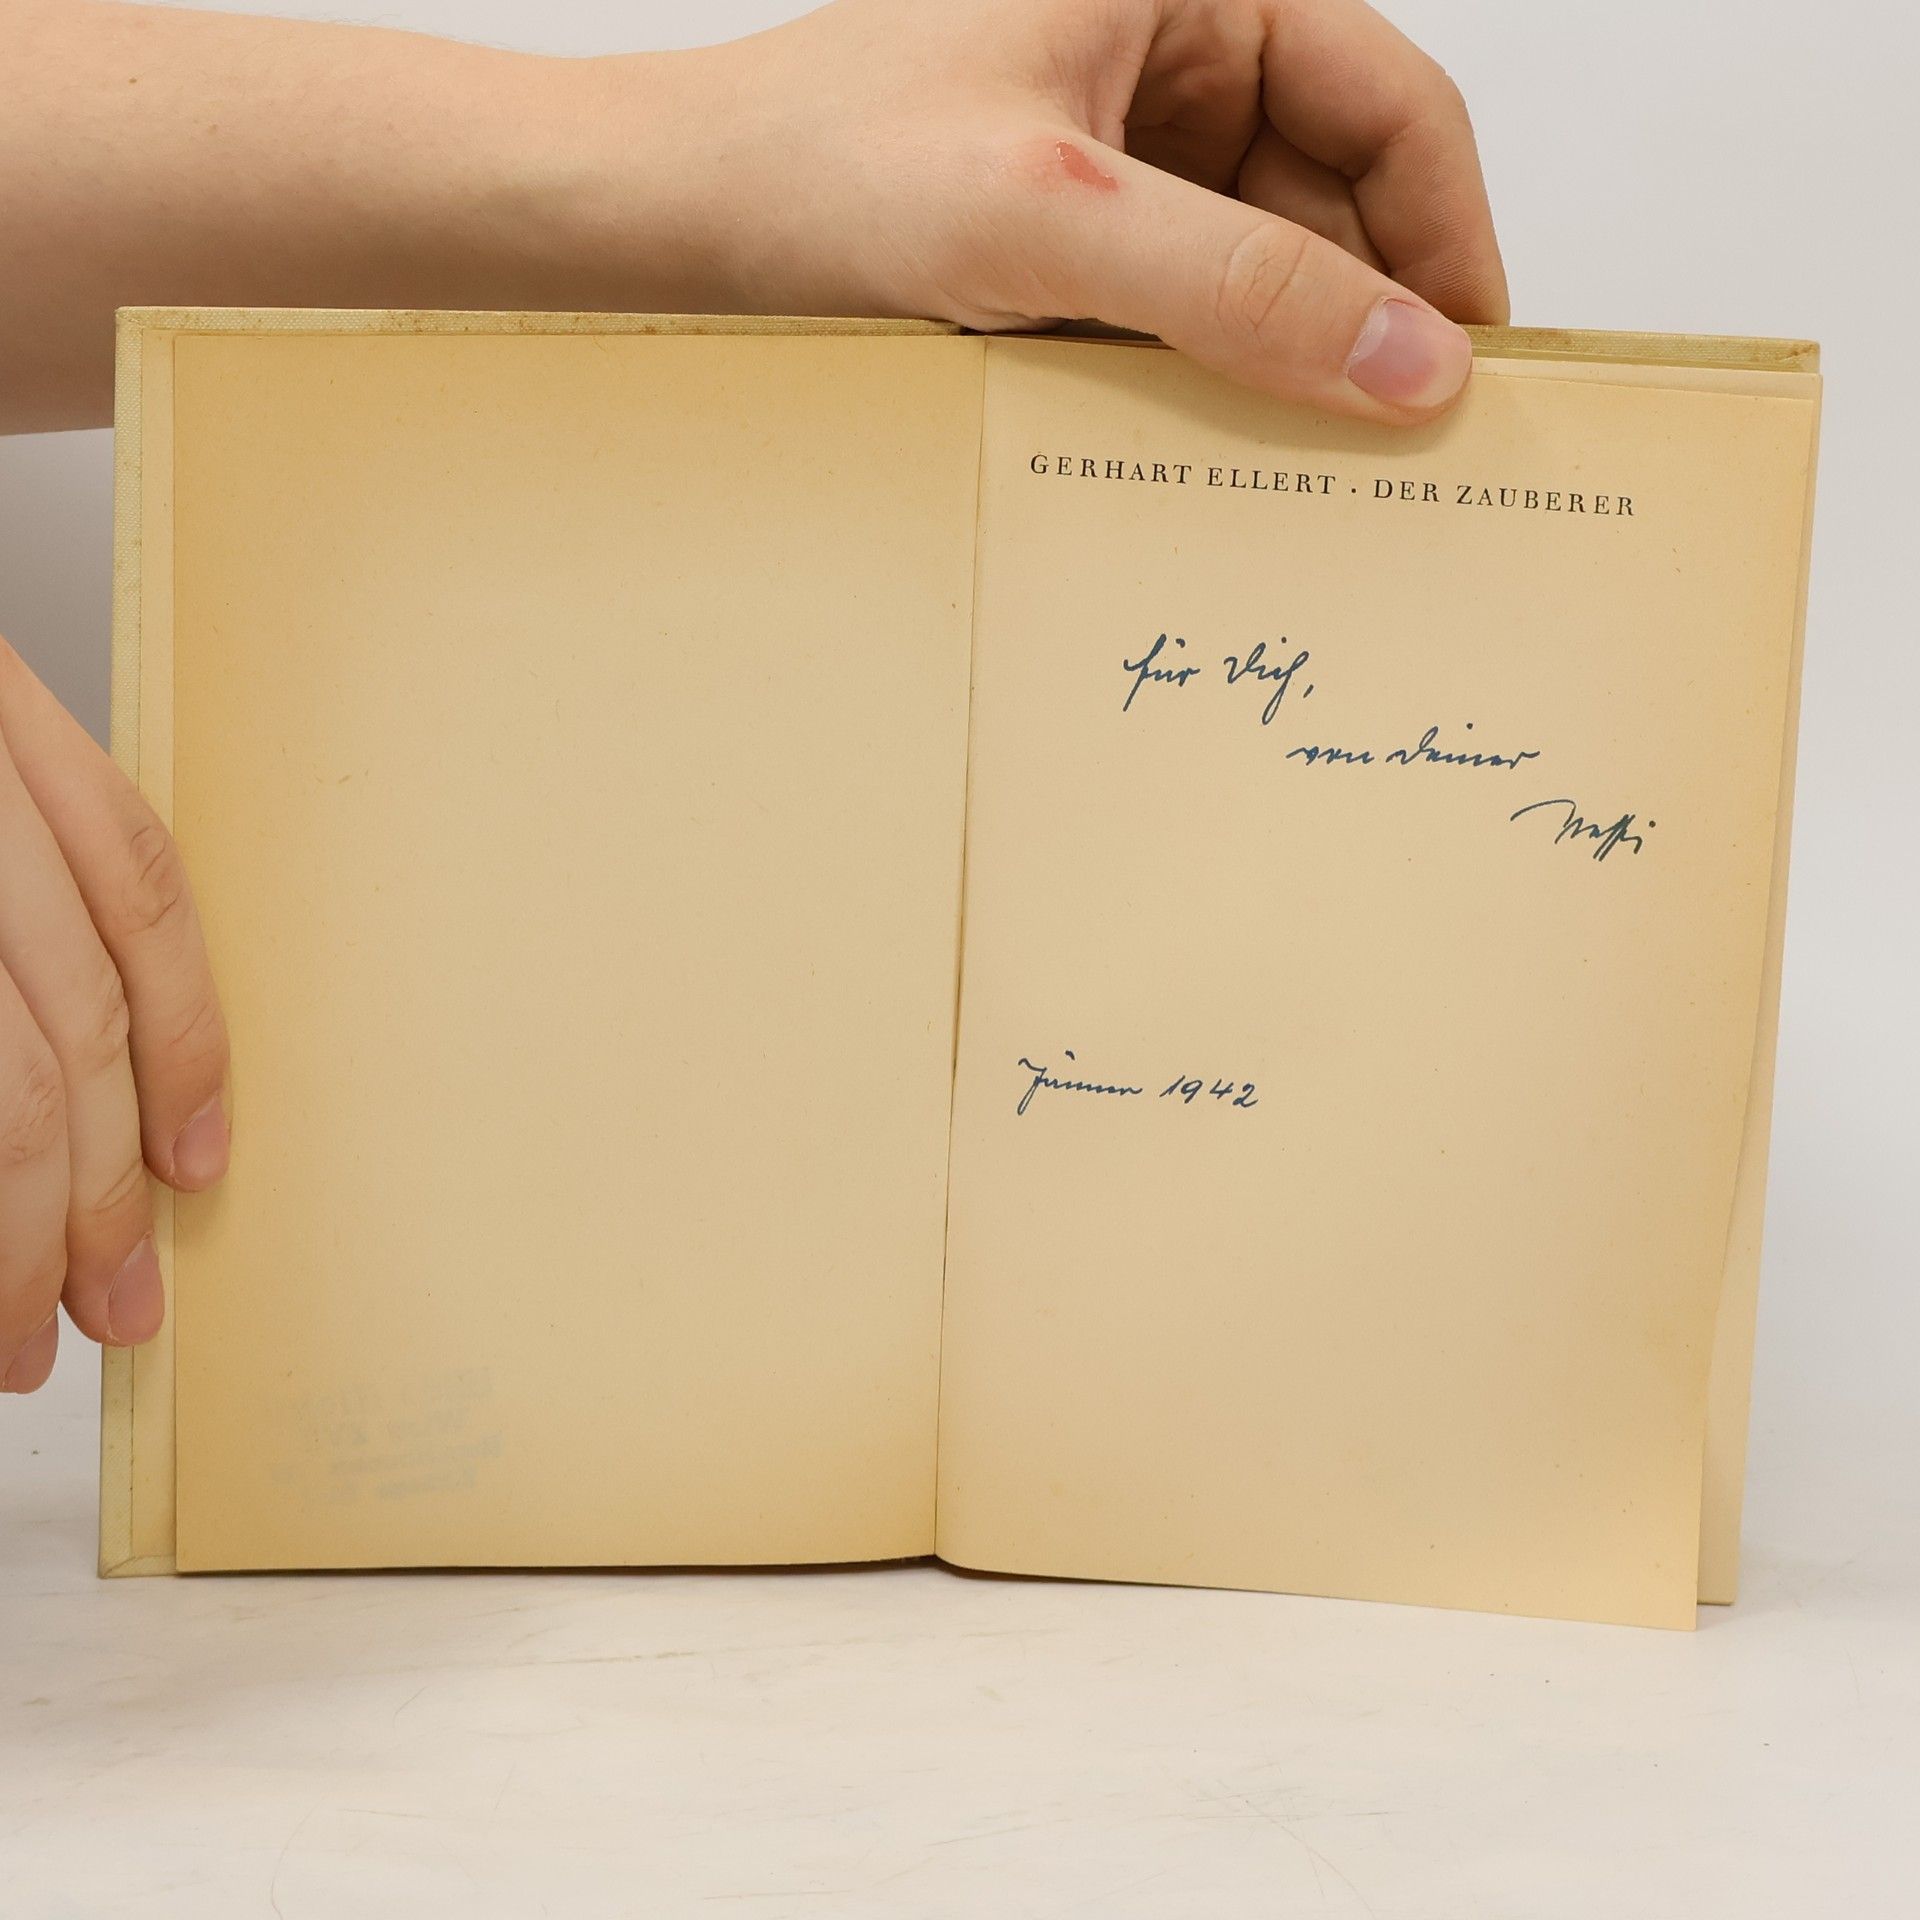 GERHART ELLERT · DER ZAUBERER
für Dich,
von Deiner
Jänner 1942